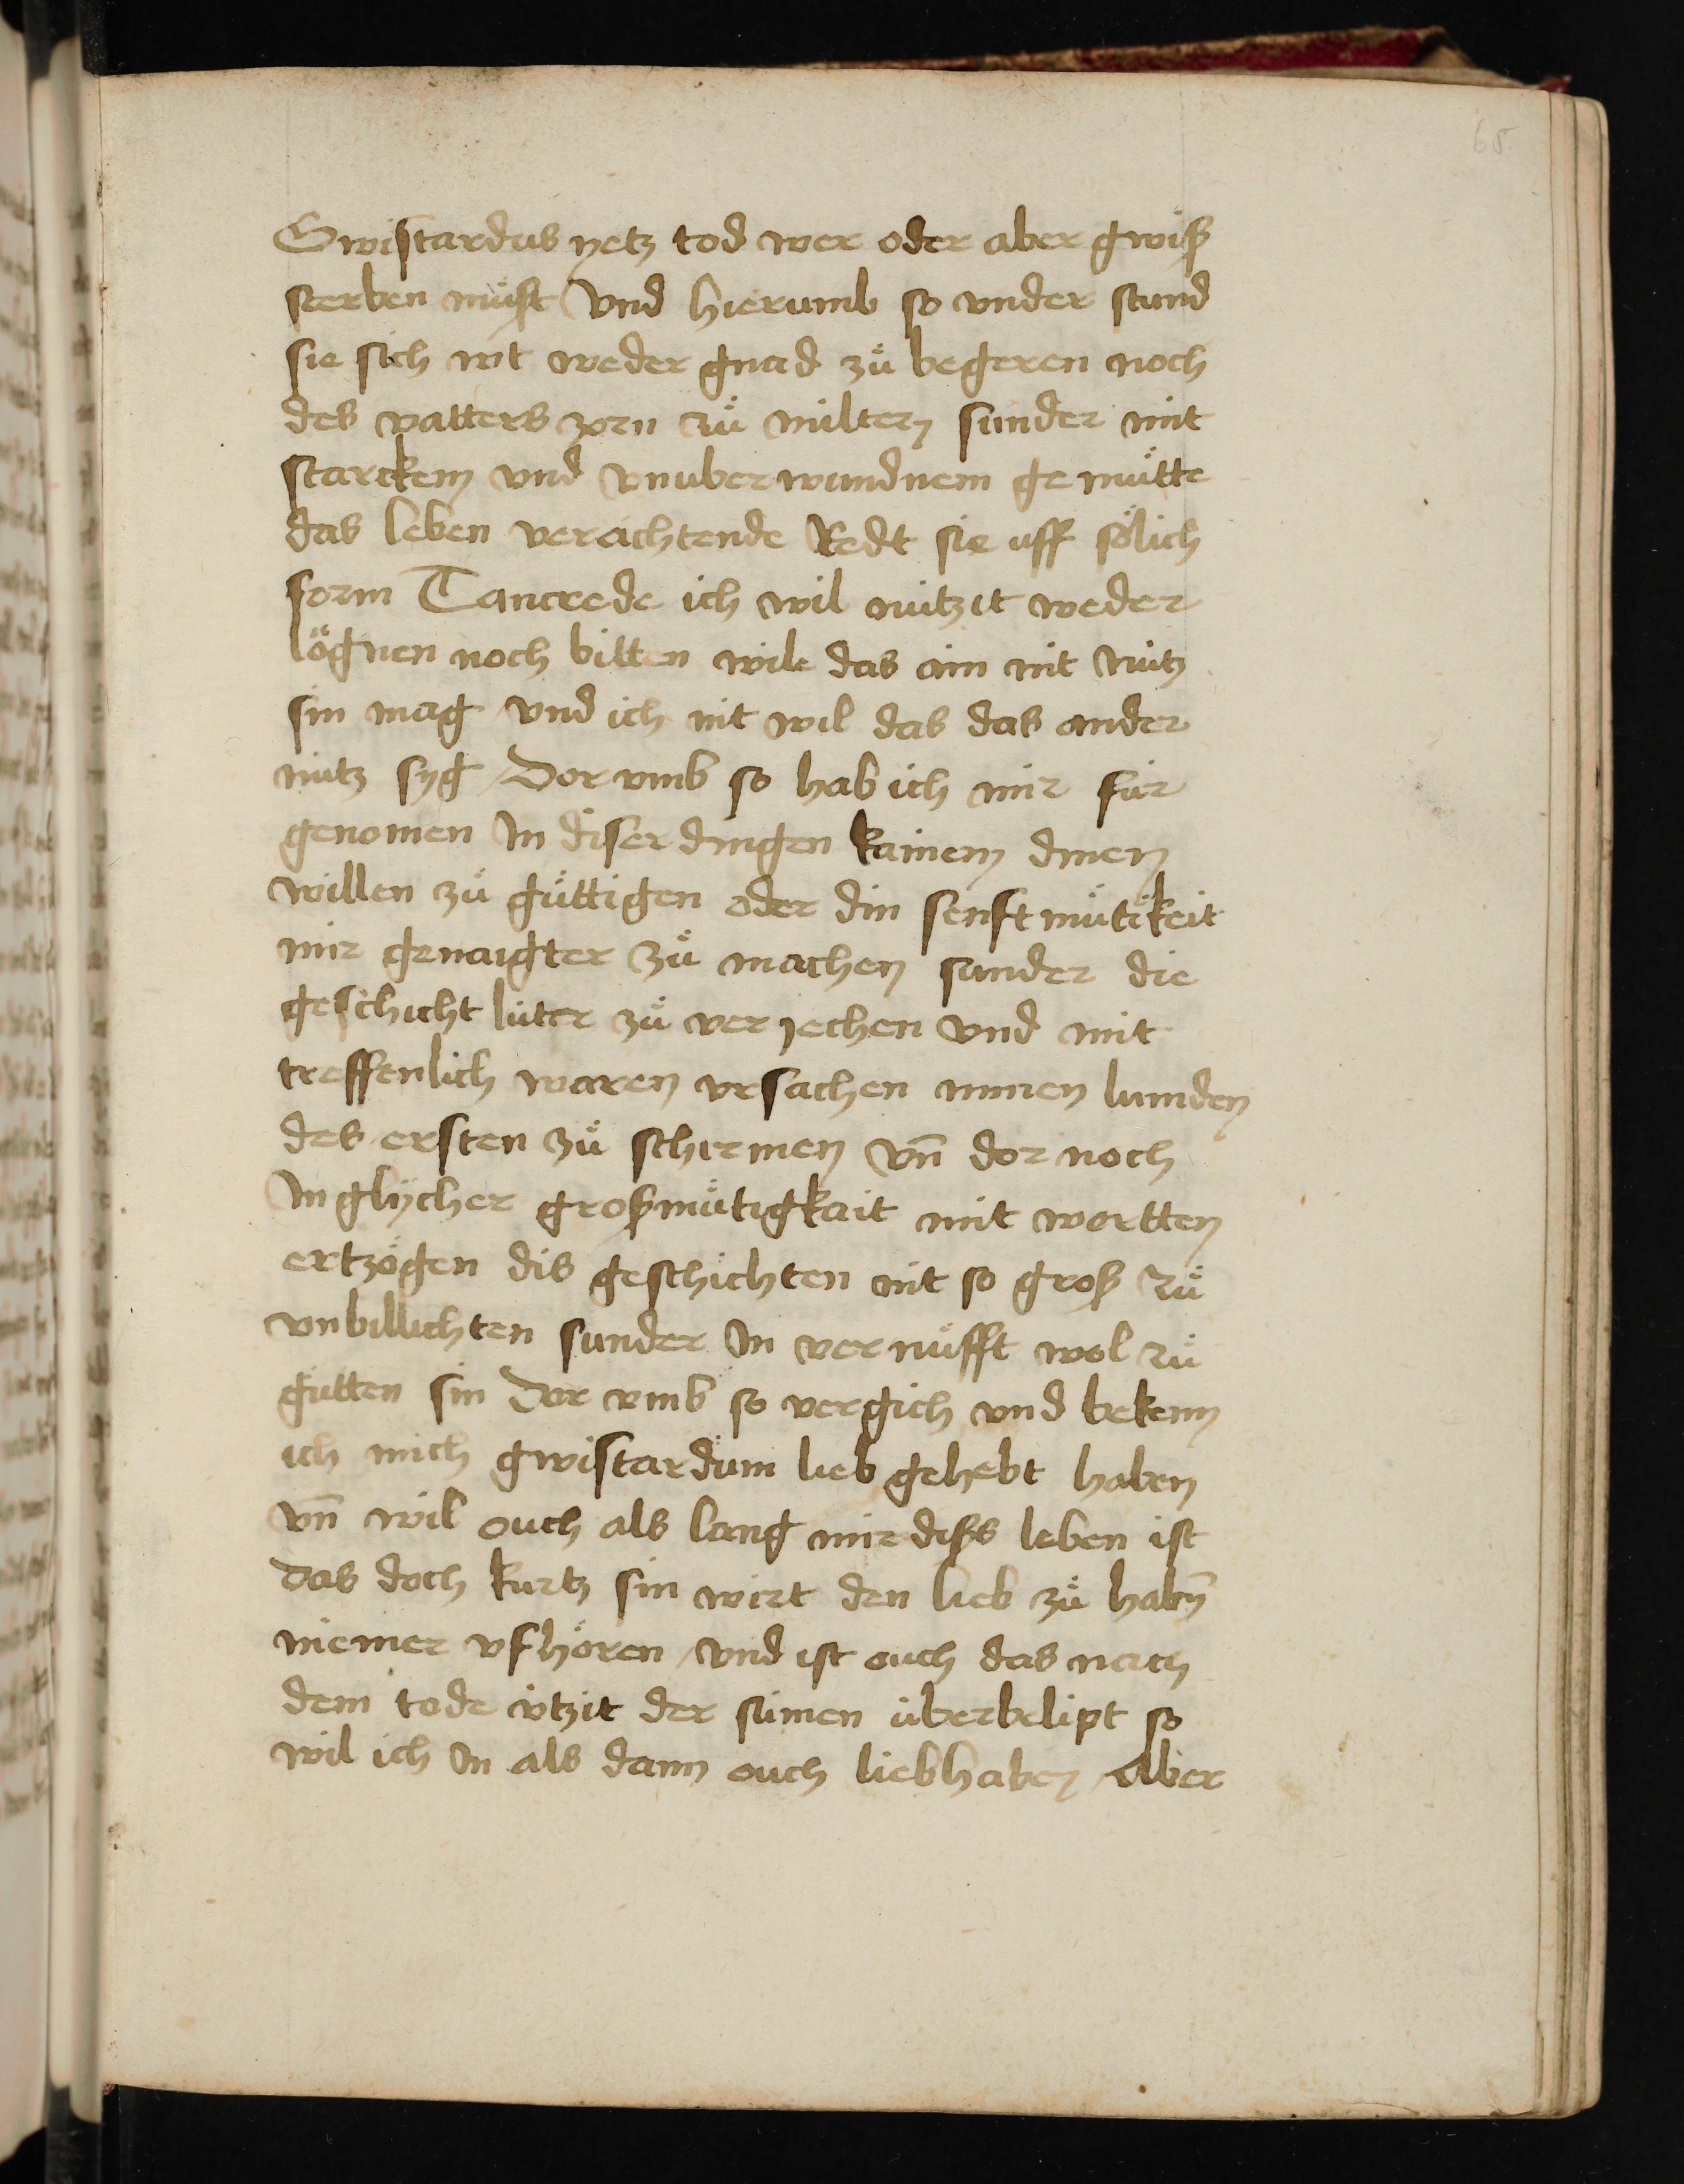 65
Gwistardus yetz tod wer oder aber gwiß
sterben müst Vnd hierumb so vnder stund
sie sich nit weder gnad zů begeren noch
des vatters zorn zů miltern sunder mit
starckem vnd vnuberwundnem gemůtte
das leben verachtende Redt sie uff sölich
form Tancrede ich wil nützit weder
lögnen noch bitten wile das ain nit nütz
sin mag vnd ich nit wil das das ander
nütz syg / Dor vmb so hab ich mir für
genomen In diser dingen kainem dinen
willen zů gůttigen oder din senftmůtikeit
mir genaigter zů machen sunder die
geschicht luter zů verjechen vnd mit
treffenlich waren vrsachen minen lumden
des ersten zů schirmen vn̄ dor noch
In glycher großmůtigkait mit wortten
ertzögen dis geschichten nit so groß zů
vnbillichten sunder In vernůfft wol zů
gutten sin Dor vmb so vergich vnd bekenn
ich mich gwistardum lieb gehebt haben
vn̄ wil ouch als lang mir diss leben ist
Das doch kurtz sin wirt den lieb zů habn̄
niemer vfhören / vnd ist ouch das nach
dem tode ützit der sinnen überbelipt so
wil ich In als dann ouch liebhaben / Aber